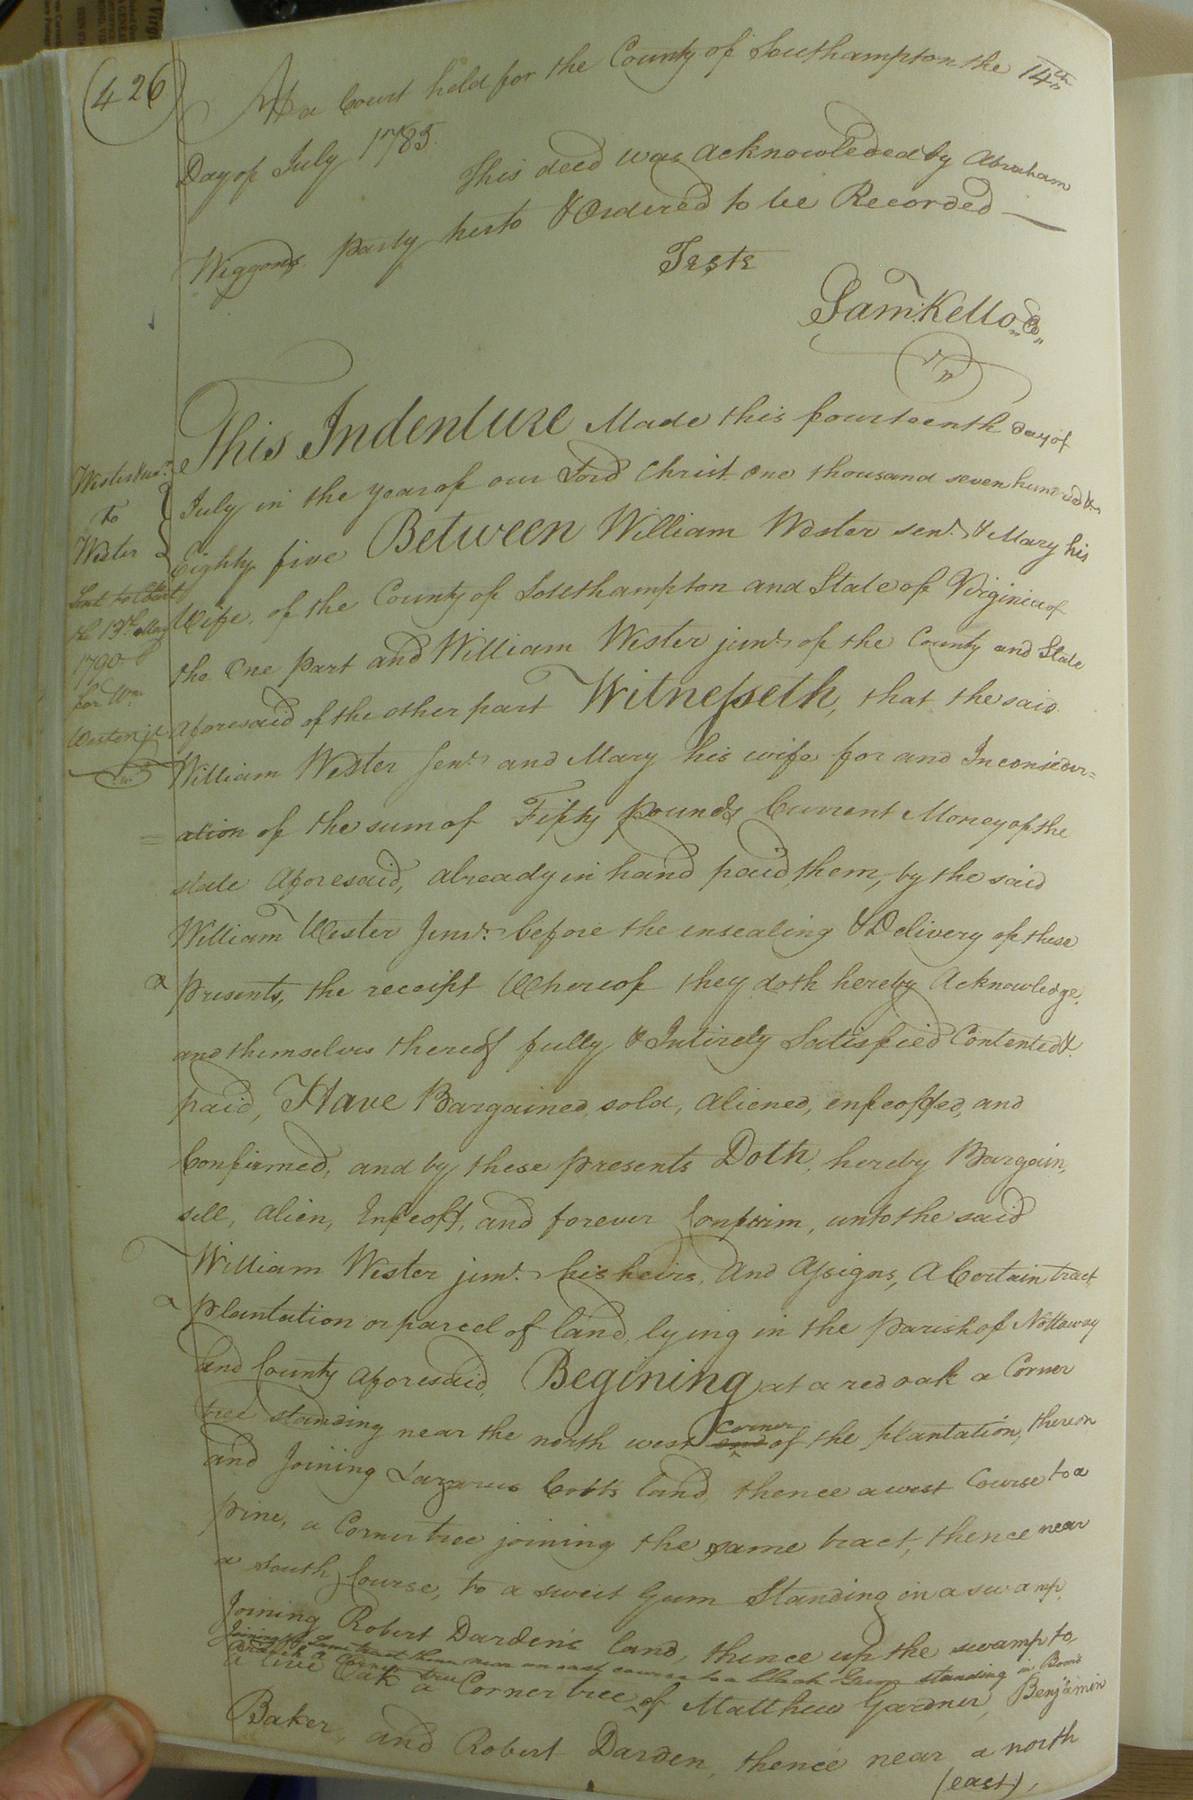 (426)
At a Court held for the County of Southampton the 14th
Day of July 1785.
This deed was acknowledged by Abraham
Wiggons party herto & Ordered to be Recorded
Teste
Sam: Kello
This Indenture Made this fourteenth day of
July in the year of our Lord Christ One thousand seven hundred &
Eighty five Between William Wester senr. & Mary his
Wife, of the County of Southampton and State of Virginia of
the One Part and William Wester junr. of the County and State
Aforesaid of the other part Witnesseth, that the said
William Wester Senr. and Mary his wife for and In consider=
=ation of the sum of Fifty Pounds Current Money of the
state Aforesaid, already in hand paid them, by the said
William Wester Junr. before the ensealing & Delivery of these
Presents, the receipt Whereof they doth hereby Acknowledge,
and themselves thereof fully & Intirely Satisfied Contented &
paid, Have Bargained, sold, aliened, enfeoffed, and
Confirmed, and by these presents Doth, hereby Bargain,
sell, alien, Enfeoff, and forever Confirm, unto the said
William Wester junr. his heirs, And Assigns, A Certain tract
Plantation or parcel of land, lying in the Parish of Nottoway
and County Aforesaid, Begining at a red oak a Corner
tree standing near the north west end Corner of the plantation, thereon
and Joining Lazarus Cobbs land thence a west Course to a
pine, a Corner tree joining the same tract, thence near
a south Course, to a sweet Gum Standing in a swamp,
Joining Robert Darden's land, thence up the swamp to
Joining the Same tract thence near an east course to a black Gum standing in
Branch a Corner tree
a live Oak a Corner tree of Matthew Gardner, Benjamin
Baker, and Robert Darden, thence near a north
(east),
Wester senr.
to
Wester
1790
for Wm.
Wester jr.